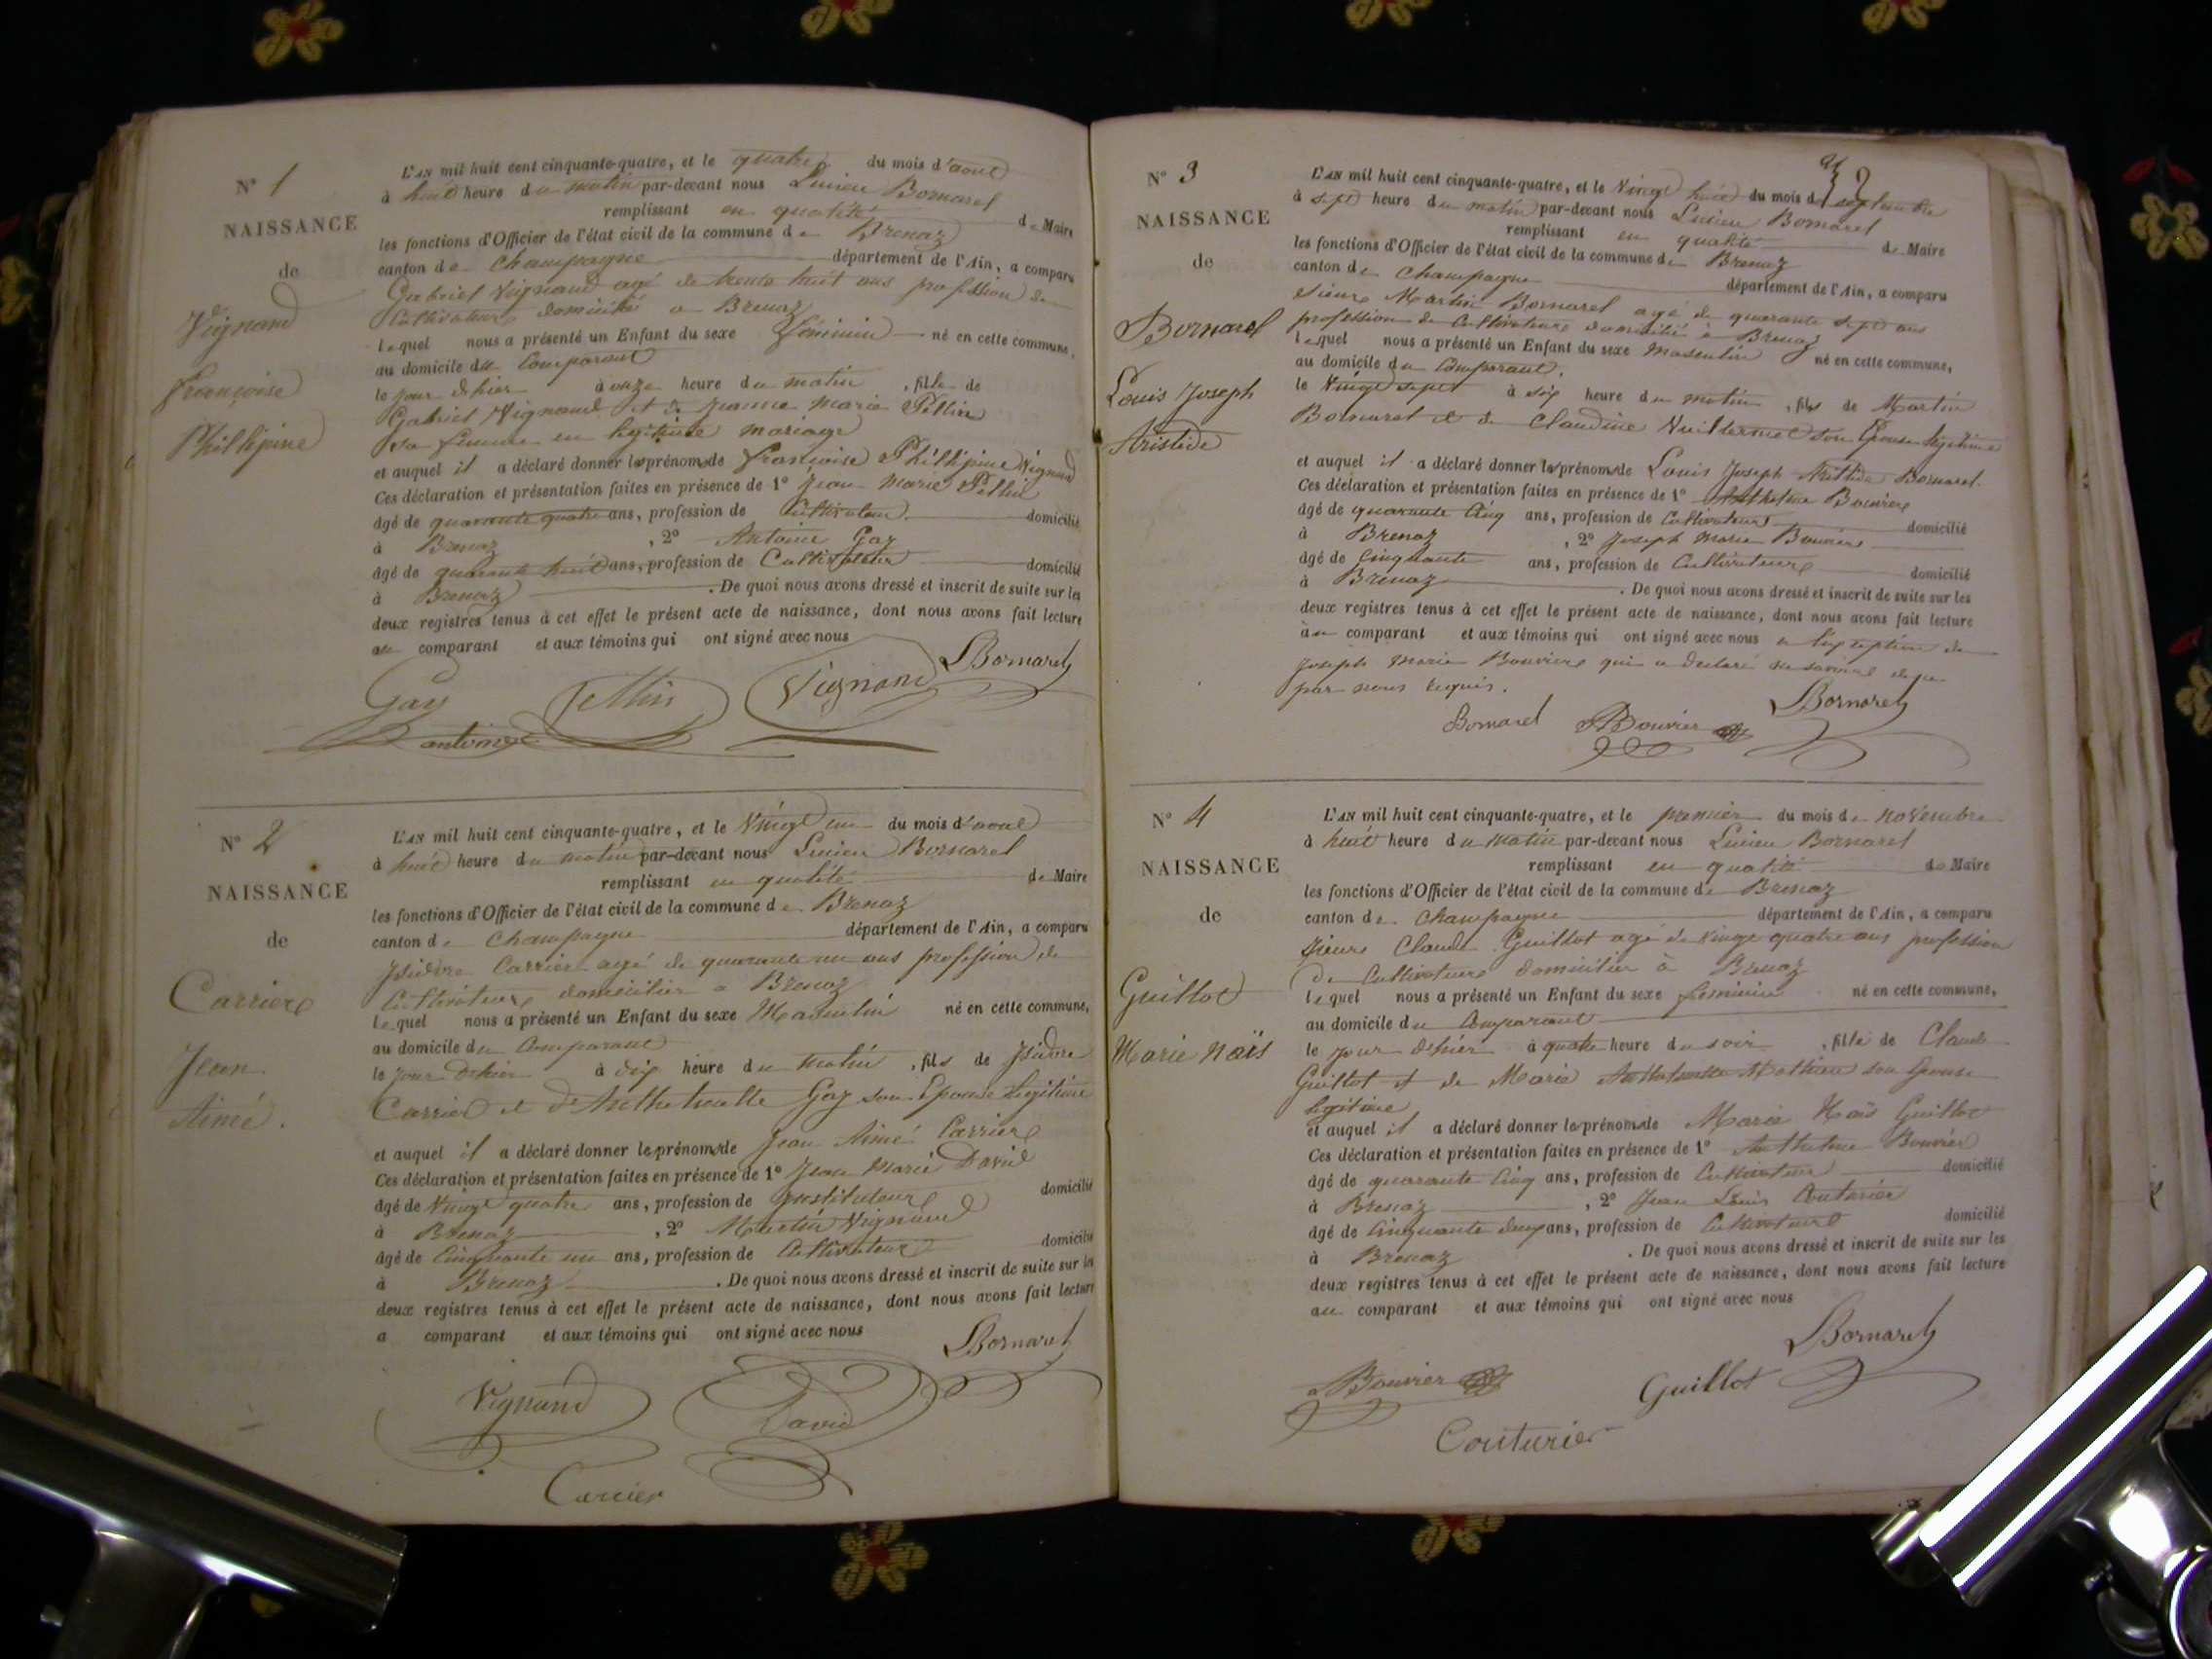 N° 1
NAISSANCE
de
Vignand
françoise
Philipine
L'AN mil huit cent cinquante-quatre, et le quatre du mois d'aout
à huit heure du matin par-devant nous Lucien Bornarel
remplissant en qualité de Maire
les fonctions d'Officier de l'état civil de la commune de Brenaz
canton de Champagne département de l'Ain, a comparu
Gabriel Vignand agé de trente huit ans profession de
Cultivateur domicilié a Brenaz
lequel nous a présenté un Enfant du sexe féminin né en cette commune,
au domicile du Comparant
le jour d'hier à onze heure du matin, fille de
Gabriel Vignand et de Jeanne Marie Pellin
sa femme en légitime mariage
et auquel il a déclaré donner les prénoms de françoise Philipine Vignand
Ces déclaration et présentation faites en présence de 1° Jean Marie Pellin
âgé de quarante quatre ans, profession de Cultivateur domicilié
à Brenaz, 2° Antoine Gay
âgé de quarante huit ans, profession de Cultivateur domicilié
à Brenaz. De quoi nous avons dressé et inscrit de suite sur les
deux registres tenus à cet effet le présent acte de naissance, dont nous avons fait lecture
au comparant et aux témoins qui ont signé avec nous
LBornarel
Gay Pellin Vignand
antoine
N° 2
NAISSANCE
de
Carrier
Jean
Aimé.
L'AN mil huit cent cinquante-quatre, et le Vingt un du mois d'aout
à huit heure du matin par-devant nous Lucien Bornarel
remplissant en qualité de Maire
les fonctions d'Officier de l'état civil de la commune de Brenaz
canton de Champagne département de l'Ain, a comparu
Isidore Carrier agé de quarante un ans profession de
Cultivateur domicilier a Brenaz
lequel nous a présenté un Enfant du sexe Masculin né en cette commune,
au domicile du Comparant
le jour d'hier à dix heure du matin, fils de Isidore
Carrier et d'Anthelmette Gay son Epouse légitime
et auquel il a déclaré donner les prénoms de Jean Aimé Carrier
Ces déclaration et présentation faites en présence de 1° Jean Marie David
âgé de Vingt quatre ans, profession de Instituteur domicilié
à Brenaz, 2° Martin Vignand
âgé de Cinquante un ans, profession de Cultivateur domicilié
à Brenaz. De quoi nous avons dressé et inscrit de suite sur les
deux registres tenus à cet effet le présent acte de naissance, dont nous avons fait lecture
a comparant et aux témoins qui ont signé avec nous
LBornarel
Vignand David
Carrier
N° 3
NAISSANCE
de
Bornarel
Louis Joseph
Aristide
L'AN mil huit cent cinquante-quatre, et le Vingt huit du mois de septembre
à sept heure du matin par-devant nous Lucien Bornarel
remplissant en qualité de Maire
les fonctions d'Officier de l'état civil de la commune de Brenaz
canton de Champagne département de l'Ain, a comparu
sieur Martin Bornarel agé de quarante sept ans
profession de Cultivateur domicilié à Brenaz
lequel nous a présenté un Enfant du sexe masculin né en cette commune,
au domicile du Comparant,
le Vingt sept à six heure du matin, fils de Martin
Bornarel et de Claudine Vuillermet son Epouse légitime
et auquel il a déclaré donner les prénoms de Louis Joseph Aristide Bornarel.
Ces déclaration et présentation faites en présence de 1° Anthelme Bouvier
âgé de quarante Cinq ans, profession de Cultivateur domicilié
à Brenaz, 2° Joseph Marie Bouvier
âgé de Cinquante ans, profession de Cultivateur domicilié
à Brenaz. De quoi nous avons dressé et inscrit de suite sur les
deux registres tenus à cet effet le présent acte de naissance, dont nous avons fait lecture
au comparant et aux témoins qui ont signé avec nous a l'exception de
Joseph Marie Bouvier qui a declaré ne savoir de ce
par nous requis.
LBornarel
Bornarel ABouvier
N° 4
NAISSANCE
de
Guillot
Marie Naïs
L'AN mil huit cent cinquante-quatre, et le premier du mois de novembre
à huit heure du matin par-devant nous Lucien Bornarel
remplissant en qualité de Maire
les fonctions d'Officier de l'état civil de la commune de Brenaz
canton de Champagne département de l'Ain, a comparu
sieur Claude Guillot agé de vingt quatre ans profession
de Cultivateur domicilier à Brenaz
lequel nous a présenté un Enfant du sexe feminin né en cette commune,
au domicile du Comparant
le jour d'hier à quatre heure du soir, fille de Claude
Guillot et de Marie Anthelmette Mathieu son Epouse
légitime
et auquel il a déclaré donner les prénoms de Marie Naïs Guillot
Ces déclaration et présentation faites en présence de 1° Anthelme Bouvier
âgé de quarante Cinq ans, profession de Cultivateur domicilié
à Brenaz, 2° Jean Louis Couturier
âgé de Cinquante deux ans, profession de Cultivateur domicilié
à Brenaz. De quoi nous avons dressé et inscrit de suite sur les
deux registres tenus à cet effet le présent acte de naissance, dont nous avons fait lecture
au comparant et aux témoins qui ont signé avec nous
LBornarel
aBouvier Guillot
Couturier